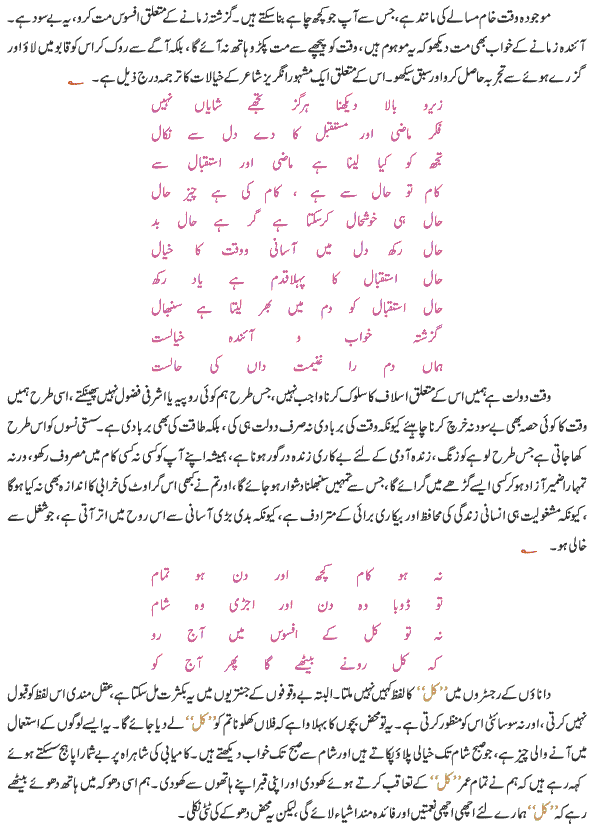 موجودہ وقت خام مسالے کی مانند ہے، جس سے آپ جو کچھ چاہے بنا سکتے ہیں۔ گزشتہ زمانے کے متعلق افسوس مت کرو، یہ بے سود ہے۔
آئندہ زمانے کے خواب بھی مت دیکھو کہ یہ موہوم ہیں، وقت کو پیچھے سے مت پکڑو ہاتھ نہ آئے گا، بلکہ آگے سے روک کر اس کو قابو میں لاؤ اور
گزرے ہوئے سے تجربہ حاصل کرو اور سبق سیکھو۔ اس کے متعلق ایک مشہور انگریز شاعر کے خیالات کا ترجمہ درج ذیل ہے۔
زیرو بالا دیکھنا ہرگز تجھے شایاں نہیں
فکر ماضی اور مستقبل کا دے دل سے نکال
تجھ کو کیا لینا ہے ماضی اور استقبال سے
کام تو حال سے ہے ، کام کی ہے چیز حال
حال ہی خوشحال کرسکتا ہے گر ہے حال بد
حال رکھ دل میں آسانی ووقت کا خیال
حال استقبال کا پہلا قدم ہے یاد رکھ
حال استقبال کو دم میں بھر لیتا ہے سنبھال
گزشتہ خواب و آئندہ خیالست
ہماں دم را غنیمت داں کی حالست
وقت دولت ہے ہمیں اس کے متعلق اسلاف کا سلوک کرنا واجب نہیں، جس طرح ہم کوئی روپیہ یا اشرفی فضول نہیں پھینکتے، اسی طرح ہمیں
وقت کا کوئی حصہ بھی بے سود نہ خرچ کرنا چاہیئے کیونکہ وقت کی بربادی نہ صرف دولت ہی کی، بلکہ طاقت کی بھی بربادی ہے۔ سستی نسوں کو اس طرح
کھا جاتی ہے جس طرح لوہے کو زنگ، زندہ آدمی کے لئے بے کاری زندہ درگور ہونا ہے، ہمیشہ اپنے آپ کو کسی نہ کسی کام میں مصروف رکھو، ورنہ
تمہارا ضمیر آزاد ہو کر کسی ایسے گڑھے میں گرائے گا، جس سے تمہیں سنبھلنا دشوار ہو جائے گا، اور تم نے کبھی اس گراوٹ کی خرابی کا اندازہ بھی نہ کیا ہوگا
، کیونکہ مشغولیت ہی انسانی زندگی کی محافظ اور بیکاری برائی کے مترادف ہے، کیونکہ بدی بڑی آسانی سے اس روح میں اتر آتی ہے، جو شغل سے
خالی ہو۔
نہ ہو کام کچھ اور دن ہو تمام
تو ڈوبا وہ دن اور اجڑی وہ شام
نہ تو کل کے افسوس میں آج رو
کہ کل رونے بیٹھے گا پھر آج کو
داناؤں کے رجسٹروں میں ”کل“ کا لفظ کہیں نہیں ملتا۔ البتہ بے وقوفوں کے جنتریوں میں یہ بکثرت مل سکتا ہے، عقل مندی اس لفظ کو قبول
نہیں کرتی، اور نہ سوسائٹی اس کو منظور کرتی ہے۔ یہ تو محض بچوں کا بہلاوا ہے کہ فلاں کھلونا تم کو ”کل“ لے دیا جائے گا۔ یہ ایسے لوگوں کے استعمال
میں آنے والی چیز ہے، جو صبح شام تک خیالی پلاؤ پکاتے ہیں اور شام سے صبح تک خواب دیکھتے ہیں۔ کامیابی کی شاہراہ پر بے شمار اپاہج سسکتے ہوئے
کہہ رہے ہیں کہ ہم نے تمام عمر ”کل“ کے تعاقب کرتے ہوئے کھو دی اور اپنی قبر اپنے ہاتھوں سے کھودی۔ ہم اسی دھوکہ میں ہاتھ دھوئے بیٹھے
رہے کہ ”کل“ ہمارے لئے اچھی اچھی نعمتیں اور فائدہ مند اشیاء لائے گی، لیکن یہ محض دھوکے کی ٹٹی نکلی۔